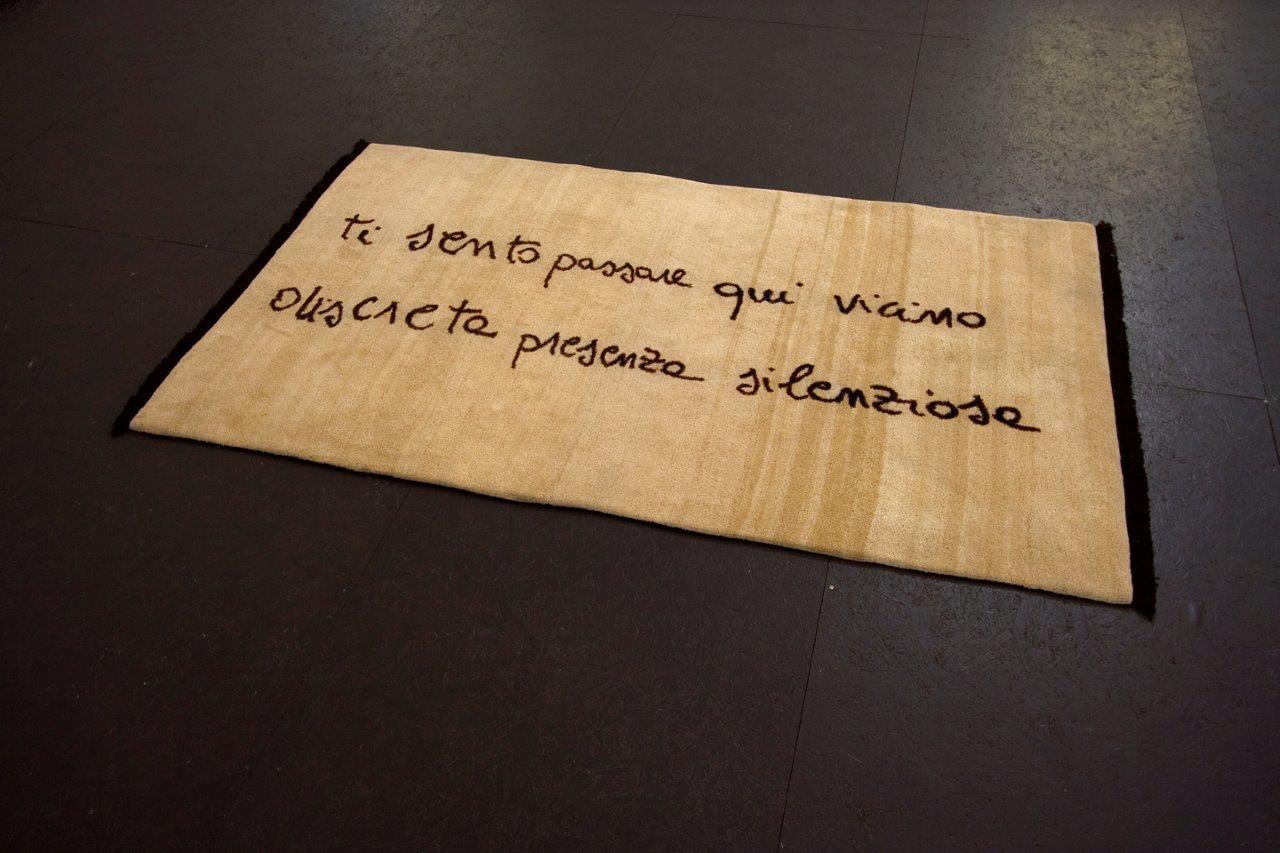 ti sento passare qui vicino
discreta presenza silenziosa